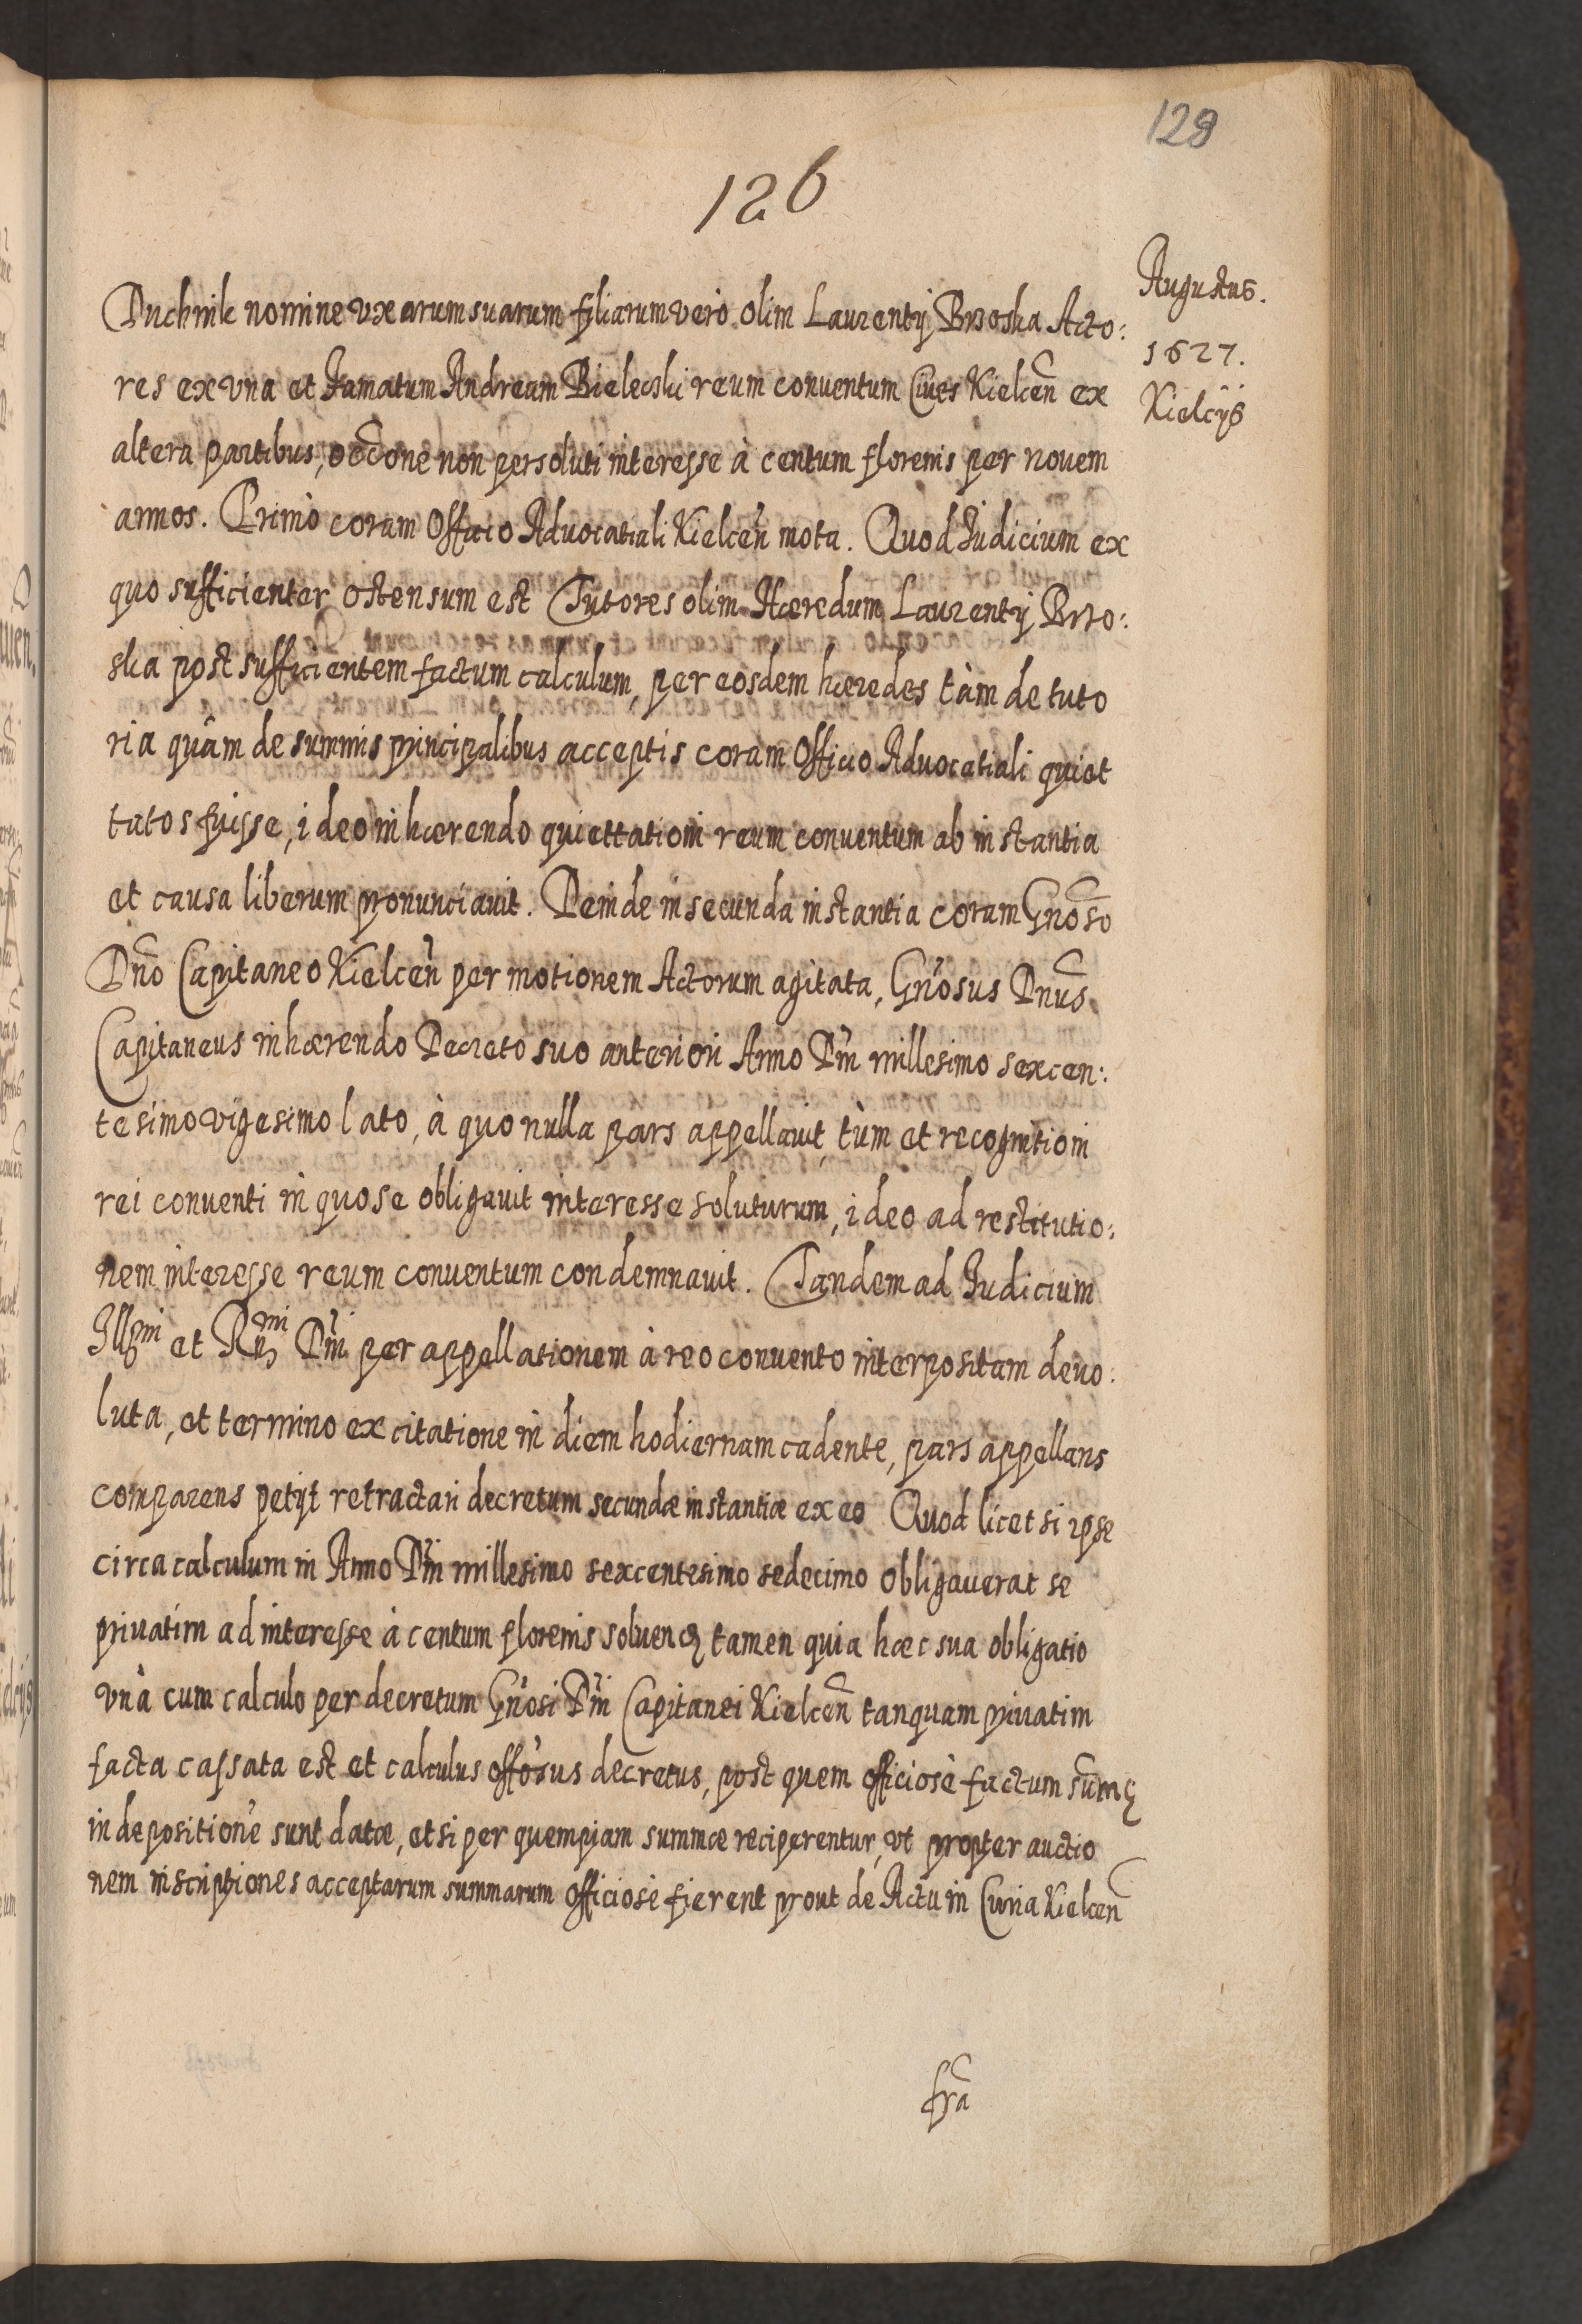 128
126
Augustus.
1627.
Kielcijs
Duchnik nomine uxorum suarum filiarum verò olim Laurentij Brzoska Acto:
res ex una et Famatum Andream Bielecski reum conventum Cives Kielceñ ex
altera partibus, occõne non persoluti interesse à centum florenis per novem
annos. Primò coram Officio Advocatiali Kielceñ mota. Quod Iudicium ex
quo sufficienter ostensum est Tutores olim Hæredum Laurentij Brzo:
ska post sufficientem factum calculum, per eosdem hæredes tàm de tuto
ria quâm de summis principalibus acceptis coram Officio Advocatiali quiet
tatos fuisse, ideo inhærendo quiettationi reum conventum ab instantia
et causa liberum pronunciavit. Deinde in secunda instantia coram Gnõso
Dño Capitaneo Kielceñ per motionem Actorum agitata, Gñosus Dnũs
Capitaneus inhærendo Decreto suo anteriori Anno Dñi millesimo sexcen:
tesimo vigesimo lato, à quo nulla pars appellavit, tùm et recognitioni
rei conventi in quo se obligavit interesse soluturum, ideo ad restitutio:
nem interesse reum conventum condemnavit. Tandem ad Iudicium
Illmi et Rmi Dñi per appellationem à reo convento interpositam devo:
luta, et termino ex citatione in diem hodiernam cadente, pars appellans
comparens petijt retractari decretum secundæ instantiæ ex eo Quod licet si ipse
circa calculum in Anno Dñi millesimo sexcentesimo sedecimo obligaverat se
privatim ad interesse à centum florenis solvenꝫ tamen quia hæc sua obligatio
unà cum calculo per decretum Gñosi Dñi Capitanei Kielceñ tanquam privatim
facta cassata est et calculus offõsus decretus, post quem officiosè factum sũmę
in depositione sunt datæ, et si per quempiam summæ reciperentur, ut propter auctio
nem inscriptiones acceptarum summarum officiosè fierent prout de Actu in Curia Kielceñ
frã